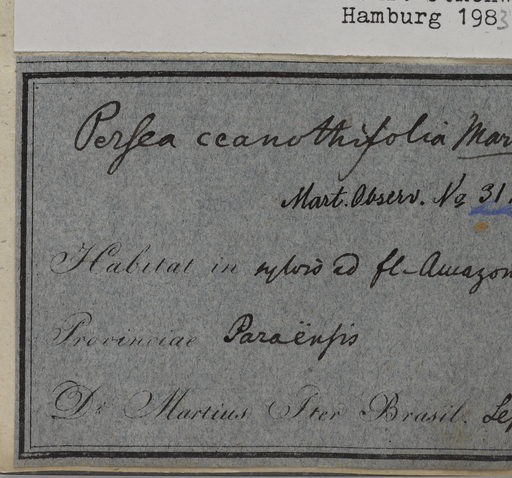 Hamburg 1983
Persea ceanothifolia Mar
Mart. Observ. No 31.
Habitat in sylvis ad fl. Amazon
Provinciae Paraënsis
Dr. Martius Iter Brasil. Sep